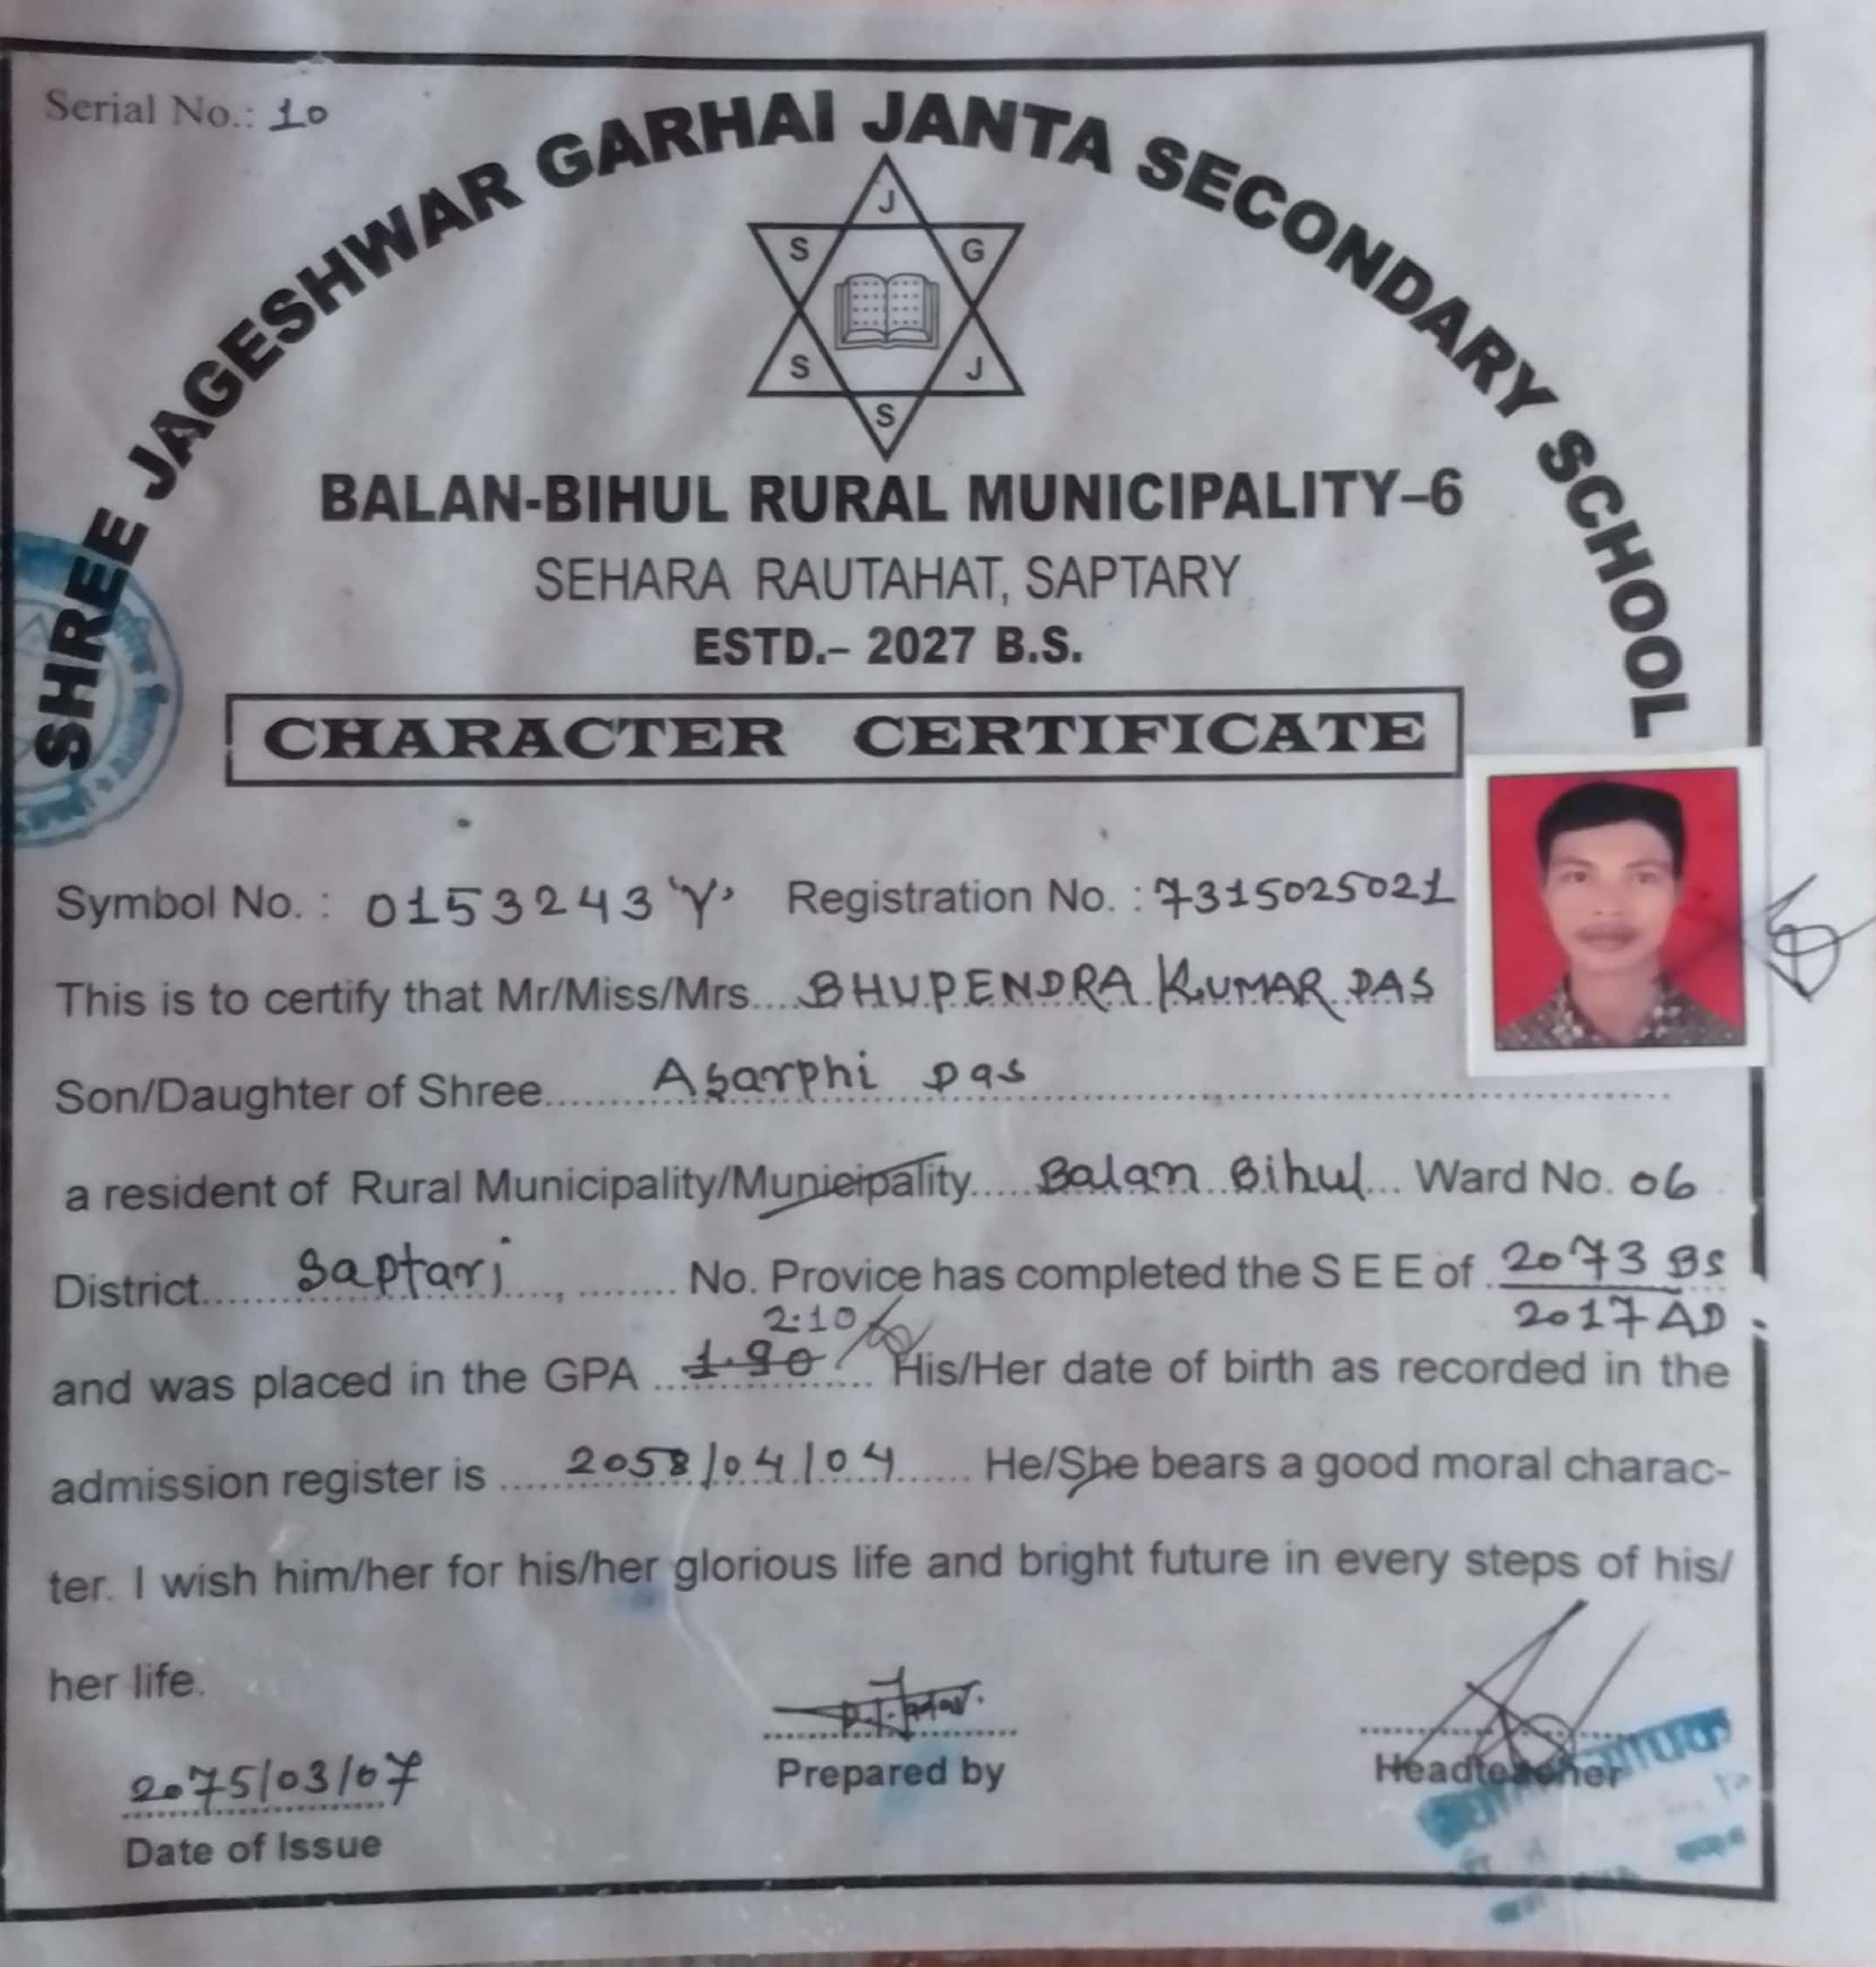 Serial No.: 10
SHREE JAGESHWAR GARHAI JANTA SECONDARY SCHOOL
J
S G
S J
S
BALAN-BIHUL RURAL MUNICIPALITY-6
SEHARA RAUTAHAT, SAPTARY
ESTD.- 2027 B.S.
CHARACTER CERTIFICATE
Symbol No. : 0153243 'Y' Registration No. : 7315025021
This is to certify that Mr/Miss/Mrs.... BHUPENDRA KUMAR DAS
Son/Daughter of Shree.......... Asarphi Das
a resident of Rural Municipality/Municipality..... Balan Bihul... Ward No. 06
District...... Saptari....., ........ No. Provice has completed the S E E of 2073 BS
2017 AD
2.10
and was placed in the GPA 1.90 His/Her date of birth as recorded in the
admission register is ..... 2058/04/04...... He/She bears a good moral charac-
ter. I wish him/her for his/her glorious life and bright future in every steps of his/
her life.
2075/03/07
Prepared by
Headteacher
Date of Issue